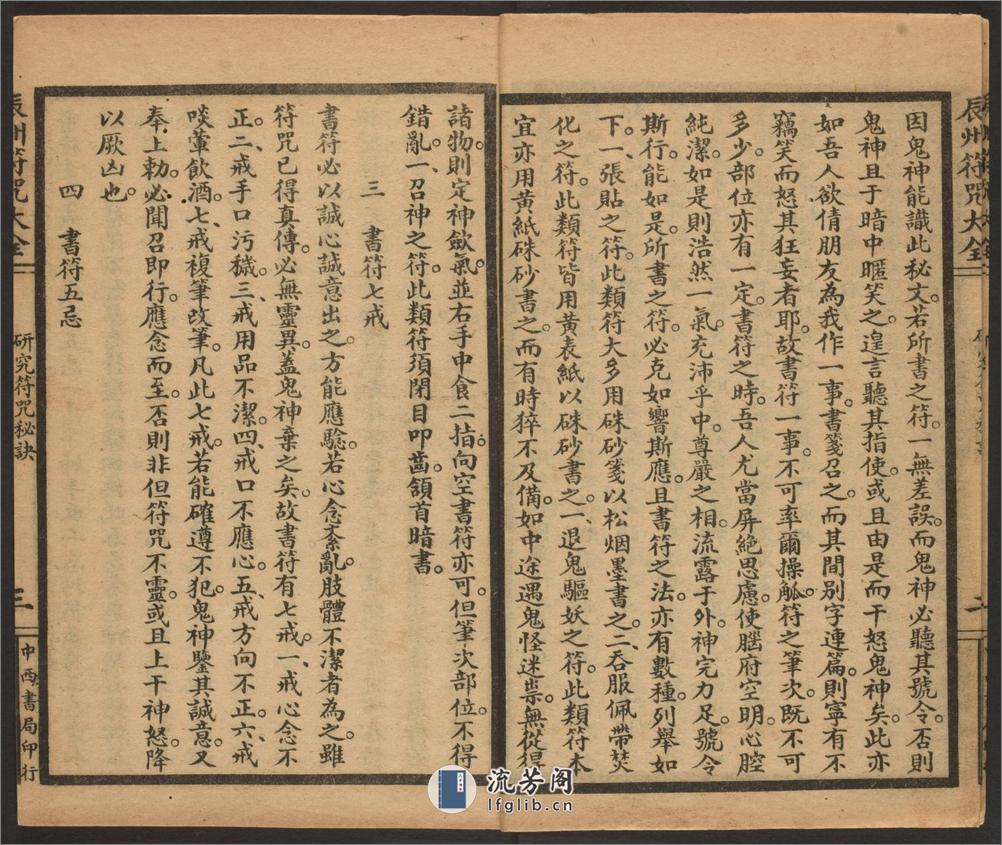 辰州符咒大全
因鬼神能識此秘文。若所書之符。一無差誤。而鬼神必聽其號令。否則
鬼神且于暗中暱笑之。遑言聽其指使。或且由是而干怒鬼神矣。此亦
如吾人欲倩朋友為我作一事。書箋召之。而其間別字連篇。則寧有不
竊笑而怒其狂妄者耶。故書符一事。不可率爾操觚。符之筆次。既不可
多少。部位亦有一定。書符之時。吾人尤當屏絕思慮。使腦府空明。心腔
純潔。如是則浩然一氣。充沛乎中。尊嚴之相。流露于外。神完力足。號令
斯行。能如是。所書之符。必克如響斯應。且書符之法。亦有數種。列舉如
下。一張貼之符。此類符大多用硃砂箋。以松烟墨書之。二、吞服佩帶焚
化之符。此類符皆用黃表紙以硃砂書之。一、退鬼驅妖之符。此類符本
宜亦用黃紙硃砂書之。而有時猝不及備。如中途遇鬼怪迷祟。無從得
諸物。則定神歛氣。並右手中食二指。向空書符亦可。但筆次部位。不得
錯亂。一、召神之符。此類符須閉目叩齒。頷首暗書。
三 書符七戒
書符必以誠心誠意出之。方能應驗。若心念紊亂。肢體不潔者為之。雖
符咒已得真傳。必無靈異。蓋鬼神棄之矣。故書符有七戒。一、戒心念不
正。二、戒手口污穢。三、戒用品不潔。四、戒口不應心。五、戒方向不正。六、戒
啖葷飲酒。七、戒複筆改筆。凡此七戒。若能確遵不犯。鬼神鑒其誠意。又
奉上勅。必聞召即行。應念而至。否則非但符咒不靈。或且上干神怒。降
以厥凶也。
四 書符五忌
辰州符咒大全
研究符咒秘訣
三
中西書局印行
流芳阁
lfglib.cn